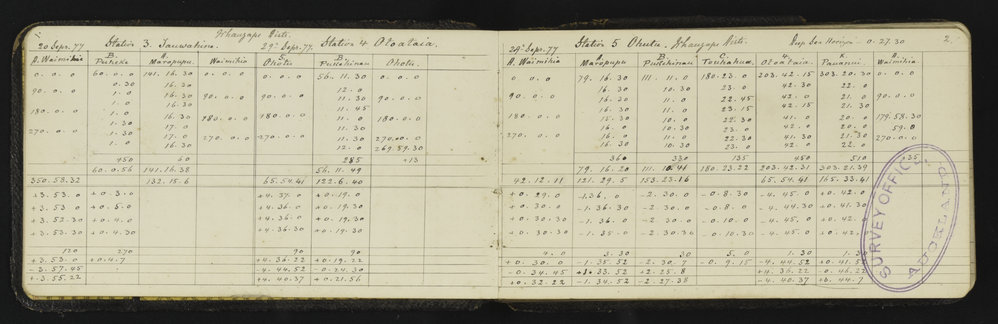 Whangape Distr.
20 Sepr. 77 Station 3. Tauwatine. 29th Sepr. 77. Station 4 Otoataia.
A. Waimihia Pukeke Maropupu. Waimihia Okutu Puketihinau Okutu.
0. 0. 0 60. 0. 0 141. 16. 30 0. 0. 0 0. 0. 0 56. 11. 30 0. 0. 0
0. 30 16. 30 12. 0
90. 0. 0 1. 0 16. 30 90. 0. 0 90. 0. 0 11. 30 90. 0. 0
1. 0 16. 30 11. 45
180. 0. 0 1. 0 16. 30 180. 0. 0 180. 0. 0 11. 0 180. 0. 0
1. 30 17. 0 11. 30
270. 0. 0 1. 30 17. 0 270. 0. 0 270. 0. 0 11. 30 270. 00. 0
1. 0 16. 30 12. 0 269. 59. 30
450 60 285 +13
60. 0. 56 141. 16. 38 56. 11. 49
350. 58. 32 132. 15. 6 65. 54. 41 122. 6. 40
+3. 53. 0 +0. 3. 0 +4. 37. 0 +0. 19. 0
+3. 53. 0 +0. 5. 0 +4. 36. 0 +0. 19. 30
+3. 52. 30 +0. 4. 0 +4. 36. 0 +0. 19. 30
+3. 53. 30 +0. 4. 30 +4. 36. 30 +0. 19. 30
120 270 90 90
+3. 53. 0 +0. 4. 7 +4. 36. 22 +0. 19. 22
-3. 57. 45 -4. 44. 52 -0. 24. 30
+3. 55. 22 +4. 40. 37 +0. 21. 56
28th Sepr. 77 Station 5 Okutu. Whangape Distr. Dep Sea Horizon 0. 27. 30 2
A. Waimihia Maropupu Puketihinau Toukahawai Otoataia. Panannui. Waimihia
0. 0. 0 79. 16. 30 111. 11. 0 180. 23. 0 203. 42. 15 303. 20. 30
16. 30 10. 30 23. 0 42. 30 22. 0
90. 0. 0 16. 30 11. 0 22. 45 42. 0 21. 0 90. 0. 0
16. 30 11. 0 23. 15 42. 15 21. 30
180. 0. 0 15. 30 10. 0 22. 30 41. 0 20. 0 179. 58. 30
16. 0 10. 30 23. 0 42. 0 20. 0 59. 0
270. 0. 0 16. 0 11. 0 22. 30 41. 30 21. 30 270. 0. 0
16. 30 10. 30 23. 0 42. 0 22. 0
360 330 135 450 510 +35
79. 16. 20 111. 10. 41 180. 23. 22 203. 42. 31 303. 21. 39
42. 12. 11 121. 29. 5 153. 23. 16 65. 54. 41 165. 33. 41
+0. 29. 0 -1. 36. 0 -2. 30. 0 -0. 8. 30 -4. 45. 0 +0. 42. 0
+0. 30. 30 -1. 36. 30 -2. 30. 0 -0. 8. 0 -4. 44. 30 +0. 41. 30
+0. 30. 30 -1. 36. 0 -2. 30. 0 -0. 10. 0 -4. 45. 0 +0. 42.
+0. 30. 30 -1. 35. 0 -2. 30. 30 -0. 10. 30 -4. 45. 0 +0. 42.
4. 0 3. 30 30 5. 0 1. 30
+0. 30. 0 -1. 35. 52 -2. 30. 7 -0. 9. 15 -4. 44. 52 +0. 41. 5
-0. 34. 45 +1. 33. 52 +2. 25. 8 +4. 36. 22 -0. 46. 22
+0. 32. 22 -1. 34. 52 -2. 27. 38 -4. 40. 37 +0. 44. 7
SURVEY OFFICE
AUCKLAND